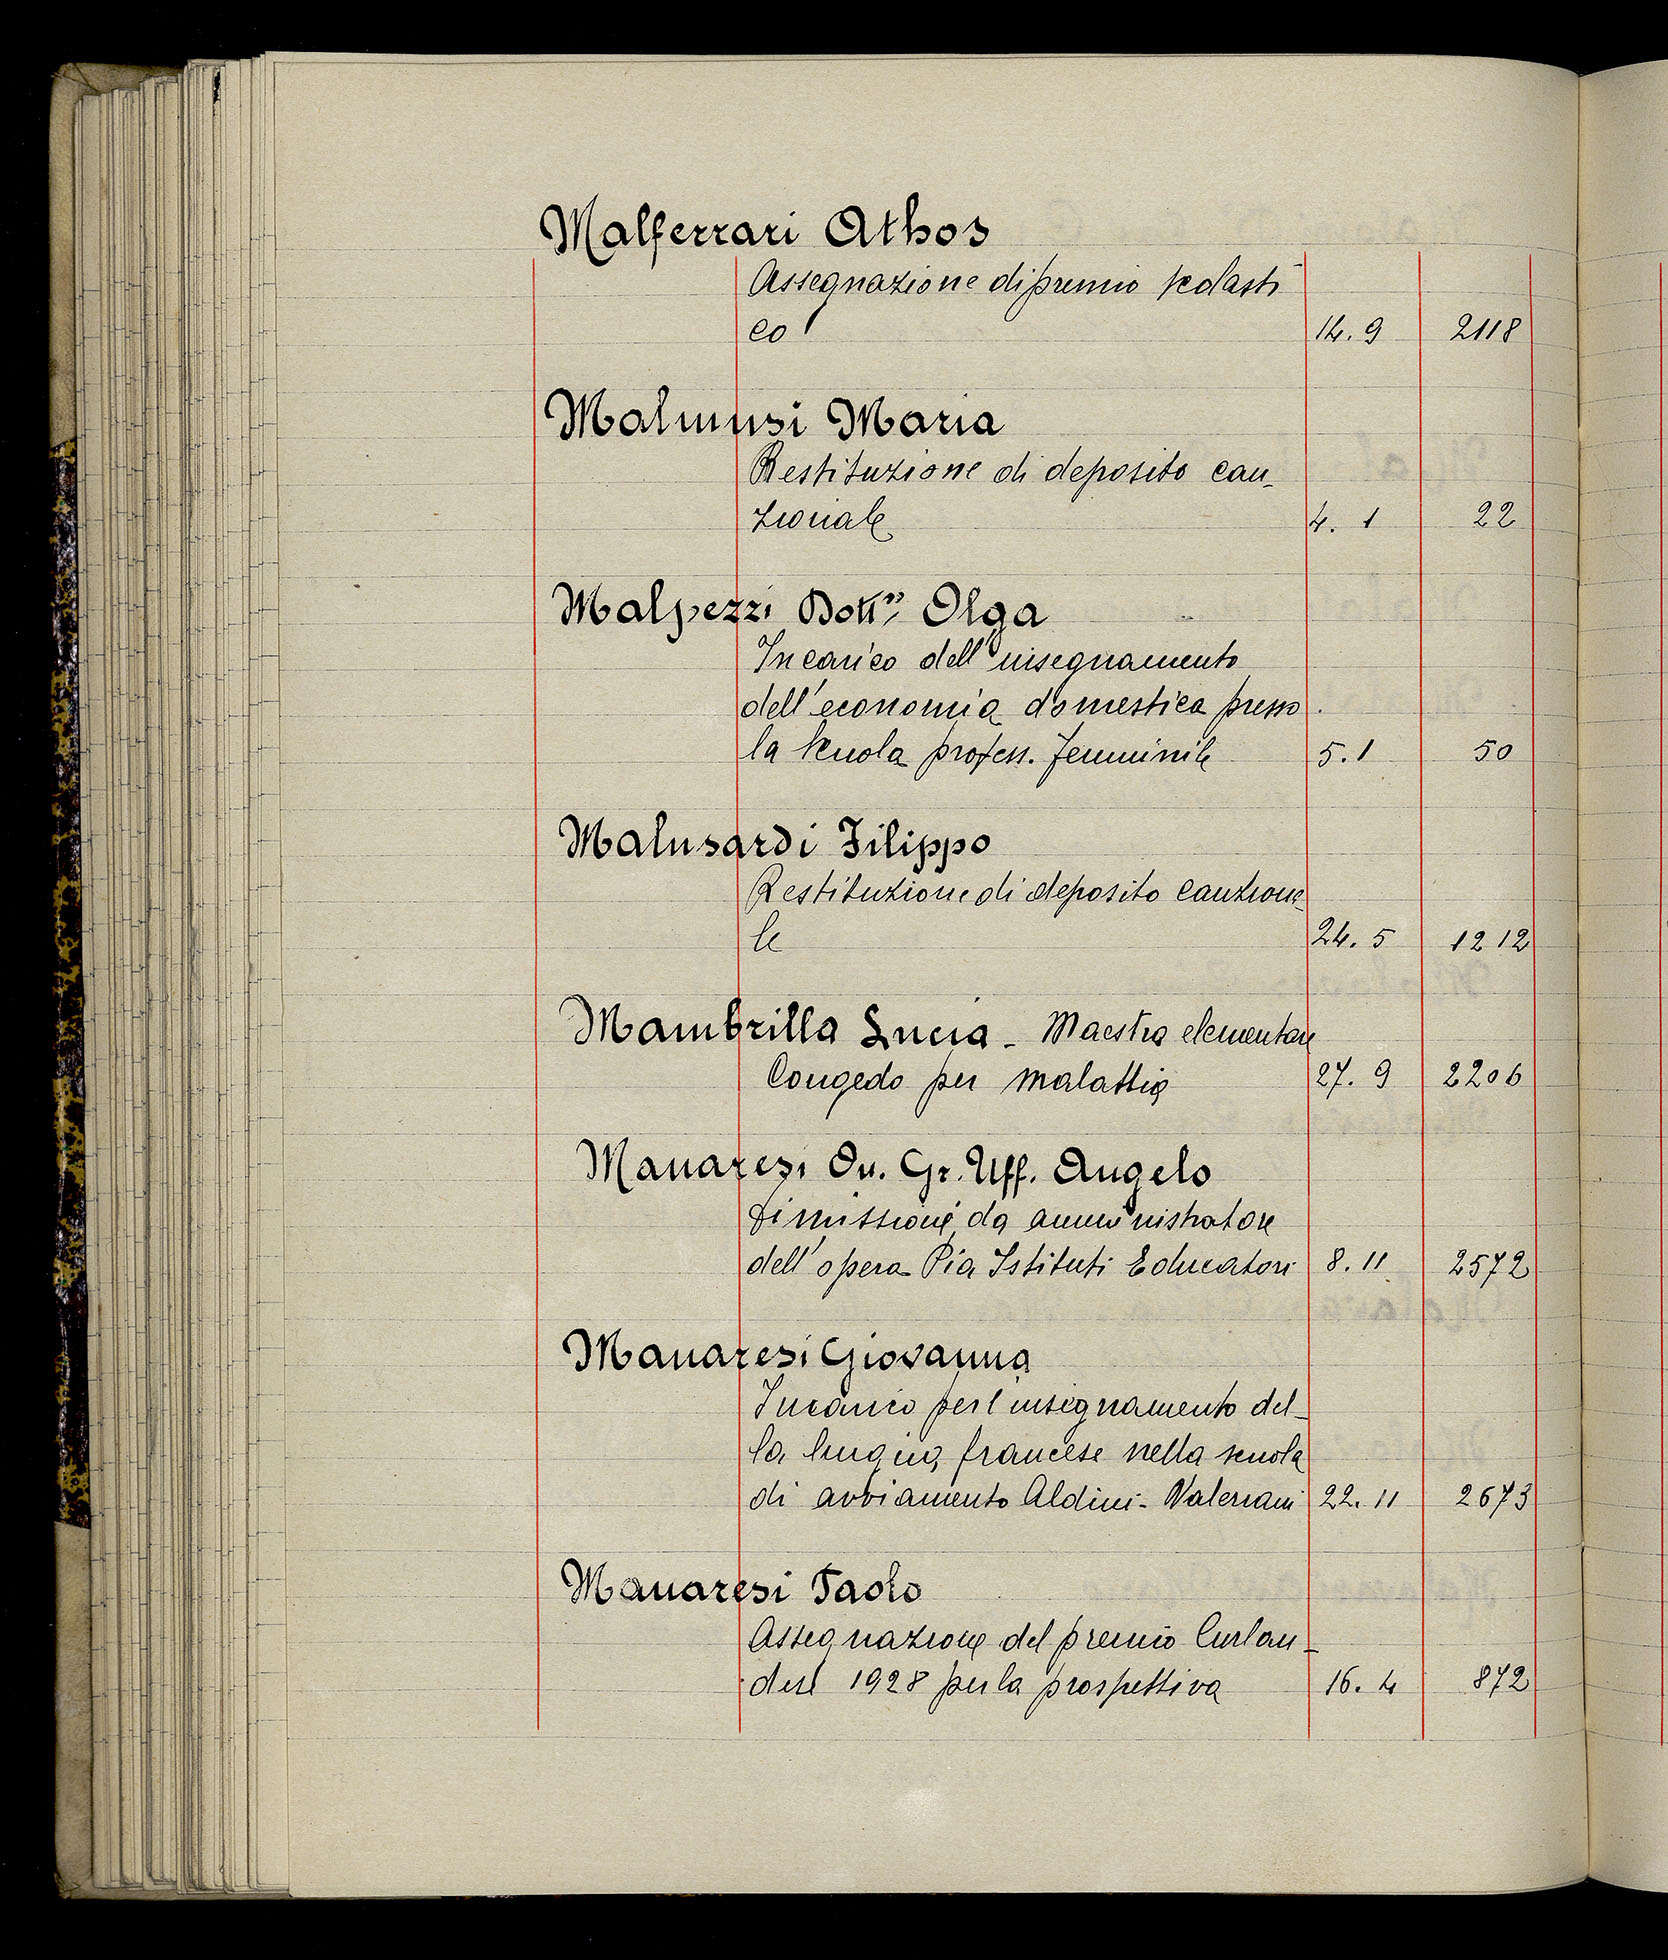 Malferrari Athos
Assegnazione di premio scolasti
co 14. 9 2118
Malmusi Maria
Restituzione di deposito cau-
zionale 4. 1 22
Malpezzi Dott.ssa Olga
Incarico dell'insegnamento
dell'economia domestica presso
la scuola profess. femminile 5. 1 50
Malusardi Filippo
Restituzione di deposito cauziona
le 24. 5 1212
Mambrilla Lucia - Maestra elementare
Congedo per malattia 27. 9 2206
Manaresi On. Gr. Uff. Angelo
Dimissione da amministratore
dell'opera Pia Istituti Educatori 8. 11 2572
Manaresi Giovanna
Incarico per l'insegnamento del-
la lingua francese nella scuola
di avviamento Aldini-Valeriani 22. 11 2673
Manaresi Paolo
Assegnazione del premio Curlan-
desl 1928 per la prospettiva 16. 4 872